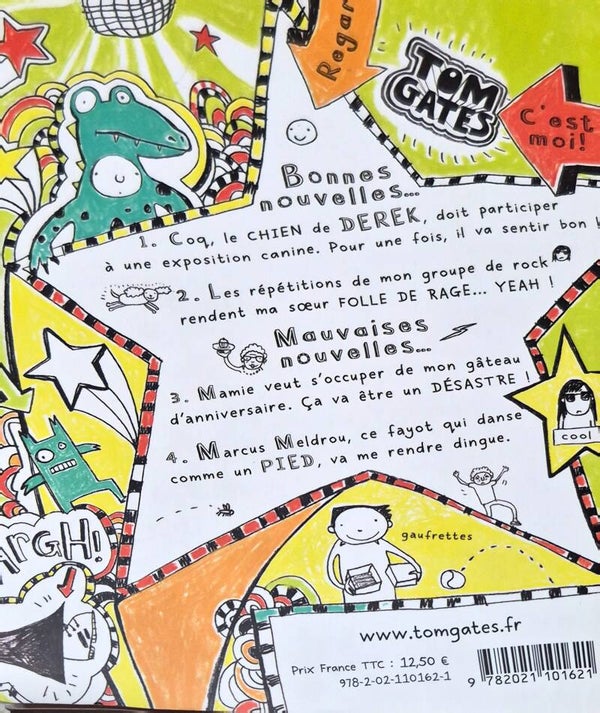 Regar
TOM
GATES
C'est
moi!
Bonnes
nouvelles...
1. Coq, le CHIEN de DEREK, doit participer
à une exposition canine. Pour une fois, il va sentir bon
2. Les répétitions de mon groupe de rock
rendent ma sœur FOLLE DE RAGE... YEAH !
Mauvaises
nouvelles...
3. Mamie veut s'occuper de mon gâteau
d'anniversaire. Ça va être un DÉSASTRE !
cool
4. Marcus Meldrou, ce fayot qui danse
comme un PIED, va me rendre dingue.
ARGH!
gaufrettes
www.tomgates.fr
Prix France TTC : 12,50 €
978-2-02-110162-1
9 782021 101621